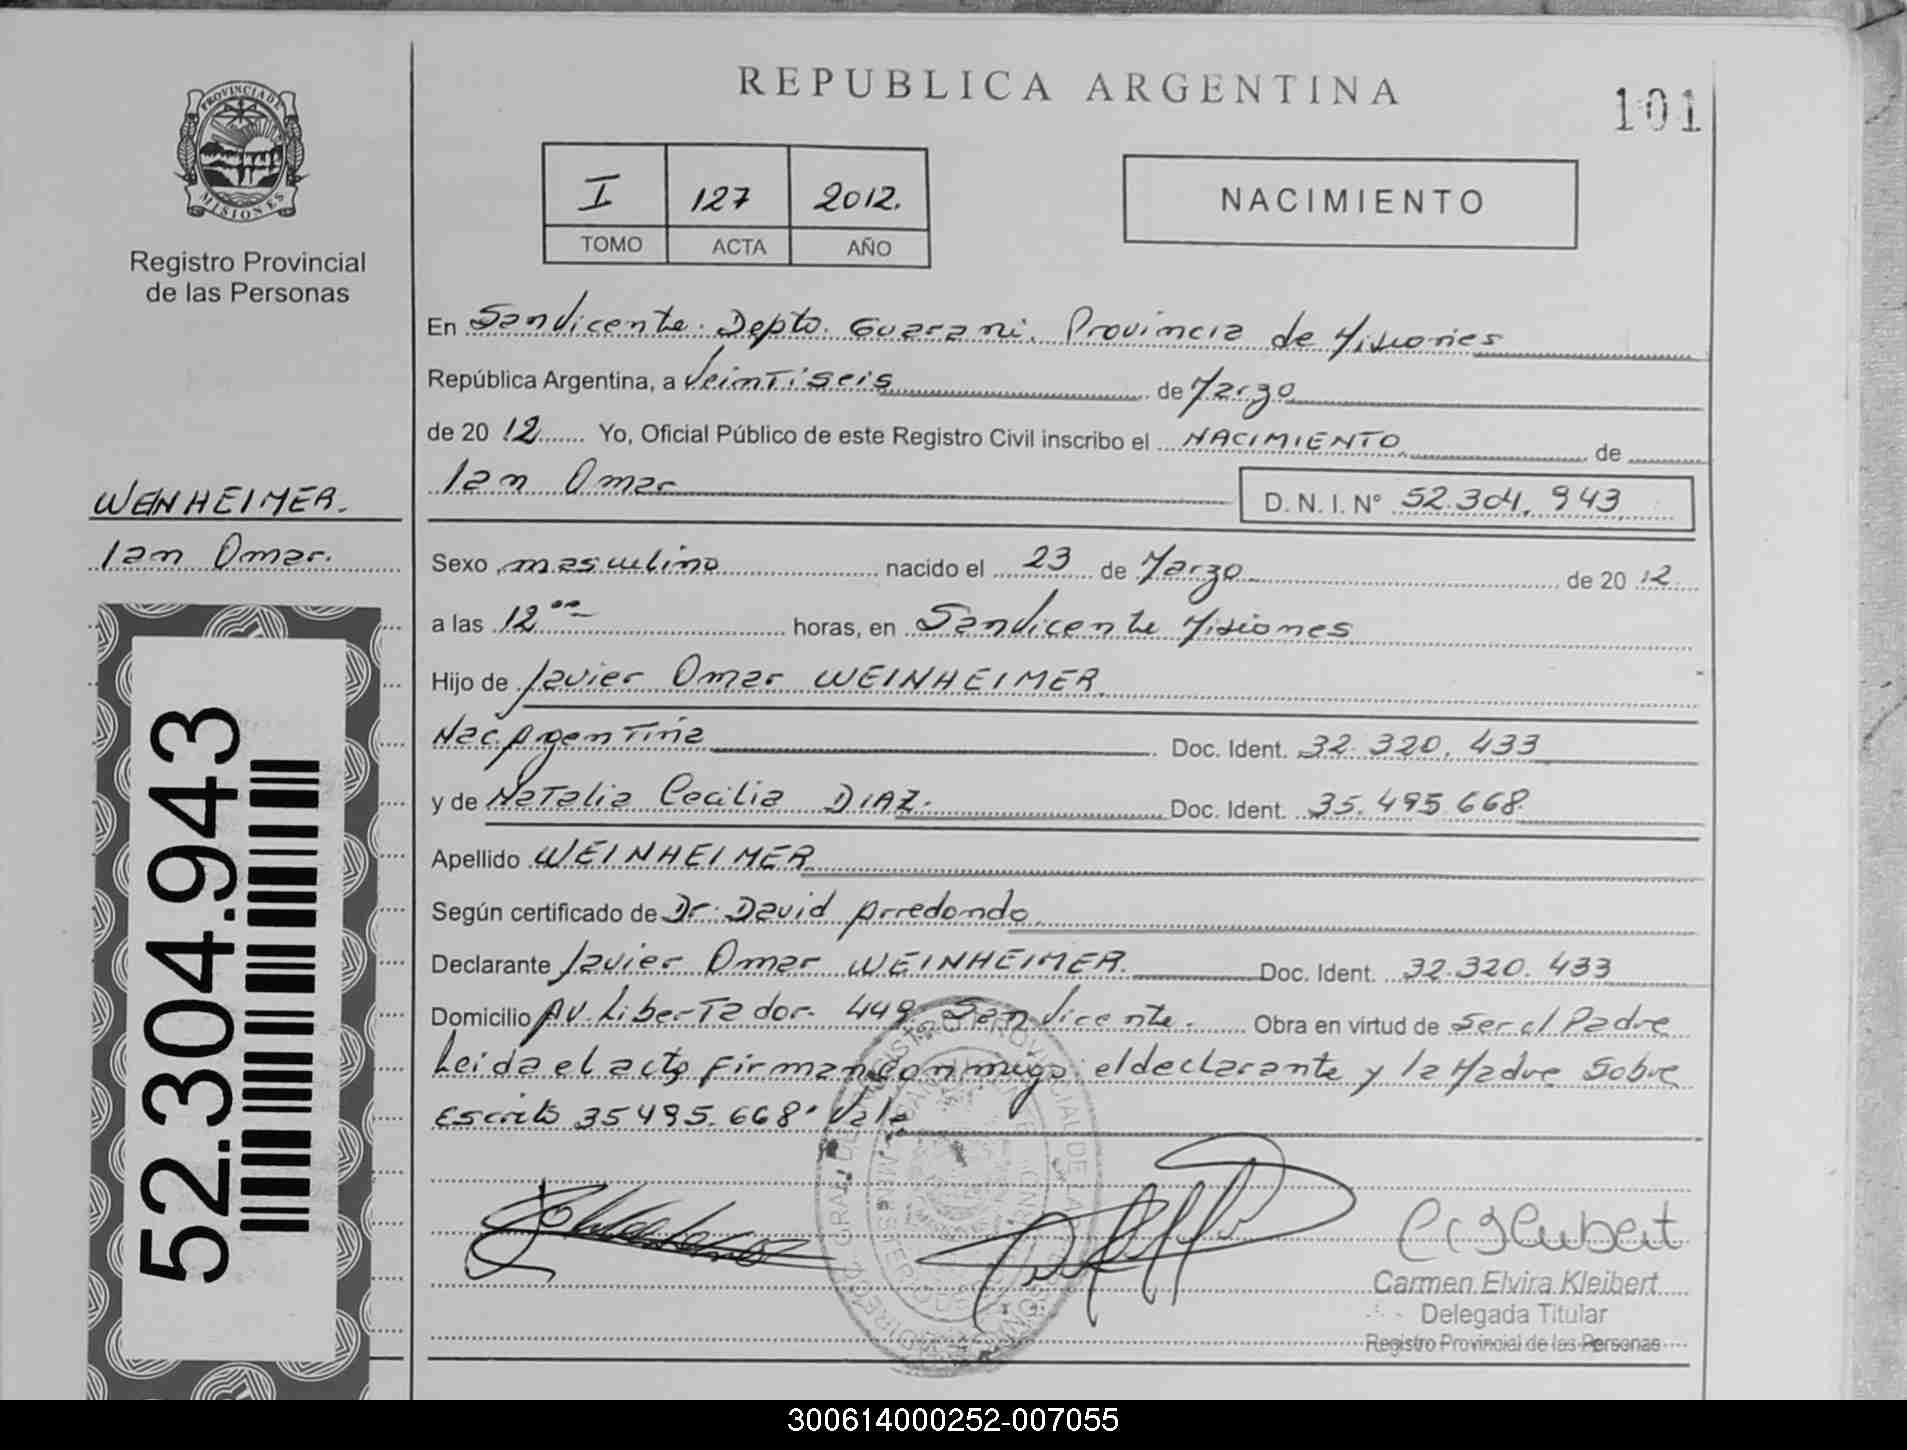 REPUBLICA ARGENTINA
101
PROVINCIA DE
MISIONES
Registro Provincial
de las Personas
I 127 2012.
TOMO ACTA AÑO
NACIMIENTO
En San Vicente. Depto. Guarani. Provincia de Misiones
República Argentina, a Veintiseis de Marzo
de 20 12 Yo, Oficial Público de este Registro Civil inscribo el NACIMIENTO de
Ian Omar
D. N. I. Nº 52.304.943
WEINHEIMER.
Ian Omar.
Sexo masculino nacido el 23 de Marzo de 20 12
a las 12 °° horas, en San Vicente Misiones
Hijo de Javier Omar WEINHEIMER
Nac. Argentina Doc. Ident. 32.320.433
y de Natalia Cecilia DIAZ. Doc. Ident. 35.495.668
Apellido WEINHEIMER
Según certificado de Dr. David Arredondo
Declarante Javier Omar WEINHEIMER. Doc. Ident. 32.320.433
Domicilio AV. Libertador. 449. San Vicente. Obra en virtud de Ser el Padre
Leida el acto firman conmigo el declarante y la Madre Sobre
Escrito 35495.668 Vale
52.304.943
Carmen Elvira Kleibert
Delegada Titular
Registro Provincial de las Personas
300614000252-007055